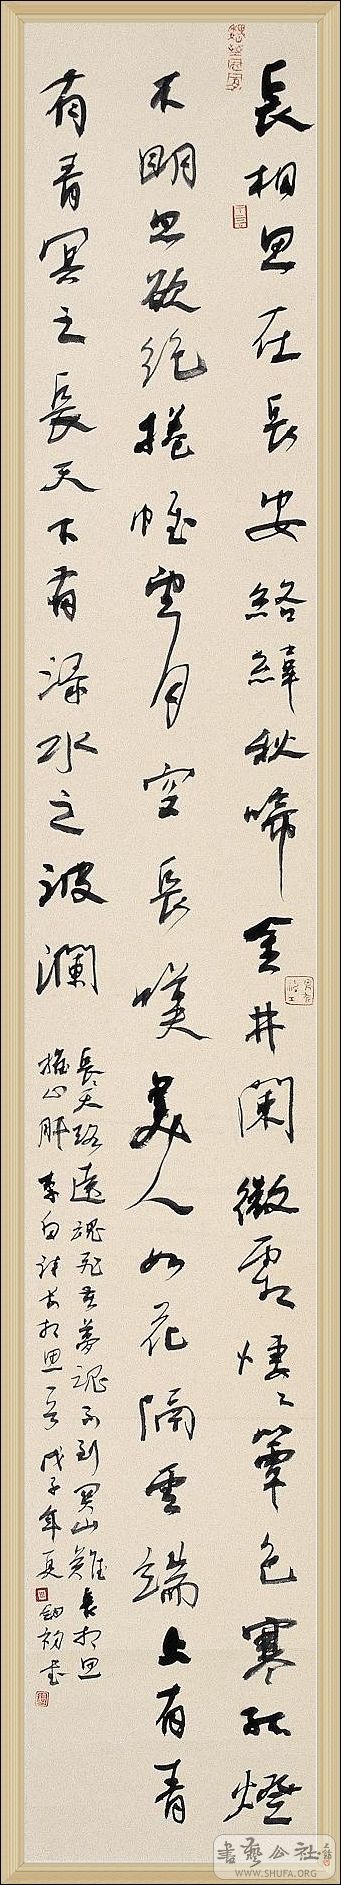 長相思在長安絡緯秋啼金井闌微霜悽〻簟色寒孤燈
不明思欲絕捲帷望月空長嘆美人如花隔雲端上有青
有青冥之長天下有淥水之波瀾
長天路遠魂飛苦夢魂不到關山難長相思
摧心肝 李白詩長相思一首 戊子年夏 書
書藝公社
www.SHUFA.ORG